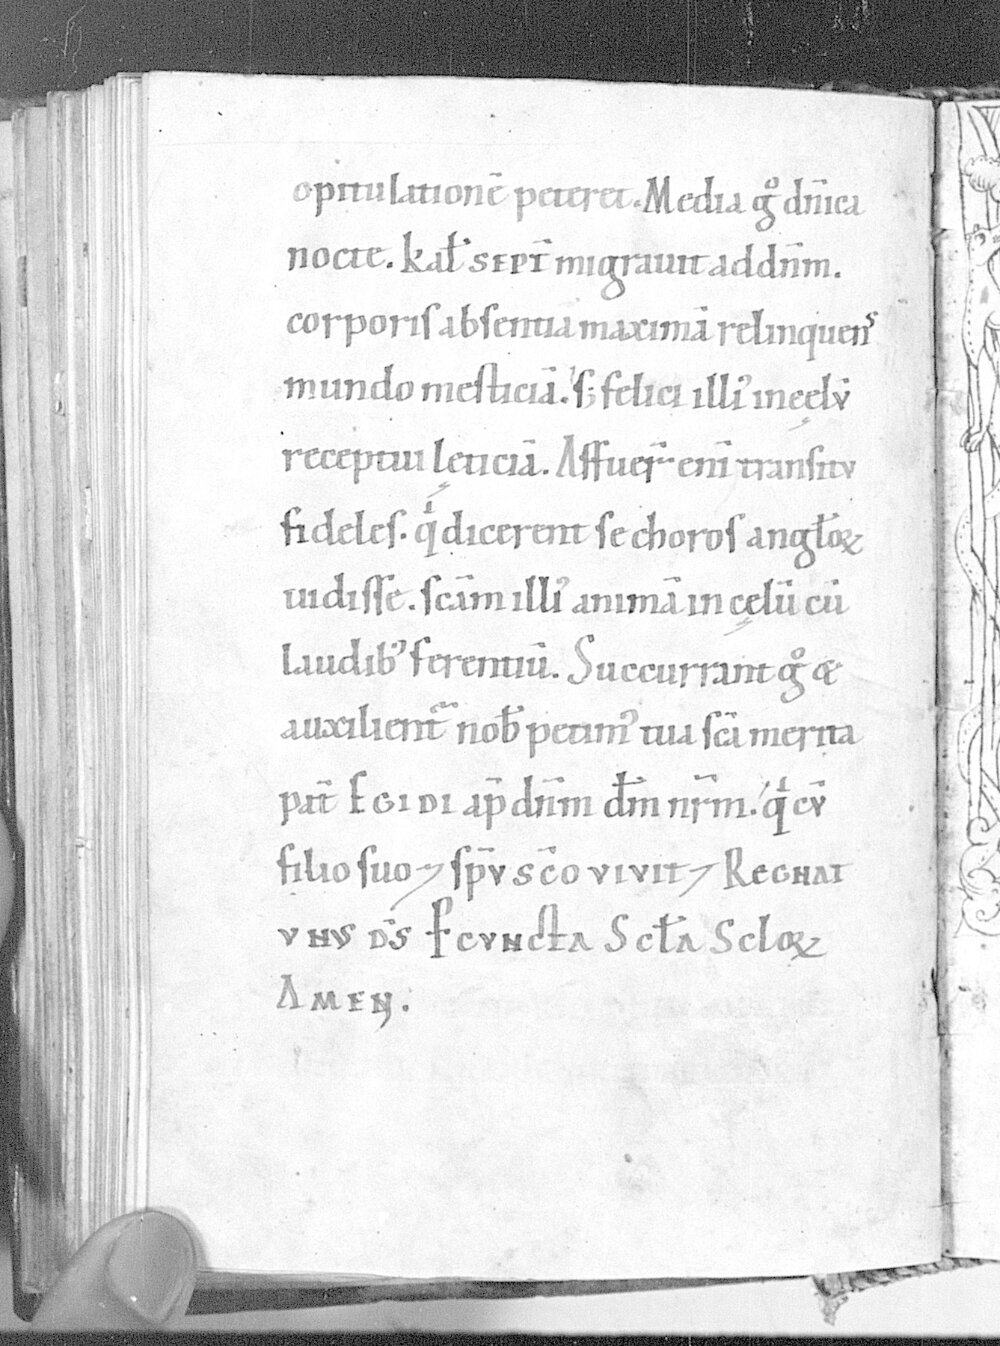 opitulationē peteret. Media gͦ dn̄ica
nocte. kal̄ SEPT̄ migrauit ad dn̄m.
corporiſ abſentiā maximā relinquenˢ
mundo meſticiā. ſ; felici illiꝰ in ęelv̄
receptui lęticiā. Aſſuer̄ eni̅ tranſitv
fideleſ. qͥ dicerent ſe choroſ angl̄oꝝ
uidiſſe. ſcām illiꝰ animā in cęlū cū
laudibꝰ ferentiū. Succurrant gͦ &
auxilient᷑ nob̄ petimꝰ tua ſcā merita
pat̄ EGIDI ap̄ dn̄m d̄m nr̄m. qͥ cv̄
filio ſuo ⁊ ſp̄v sc̄o vivit ⁊ REGNAT
VNVS D̄S P̱ CVNCTA Sct̄a Sclo̅ꝝ
AMEN.